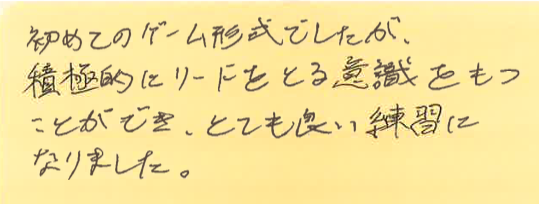 初めてのゲーム形式でしたが、
積極的にリードをとる意識をもつ
ことができ、とても良い練習に
なりました。